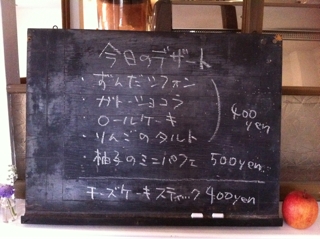 今日のデザート
・ずんだシフォン
・ガトーショコラ
・ロールケーキ
・りんごのタルト
400 yen
・柚子のミニパフェ 500yen
チーズケーキスティック 400yen